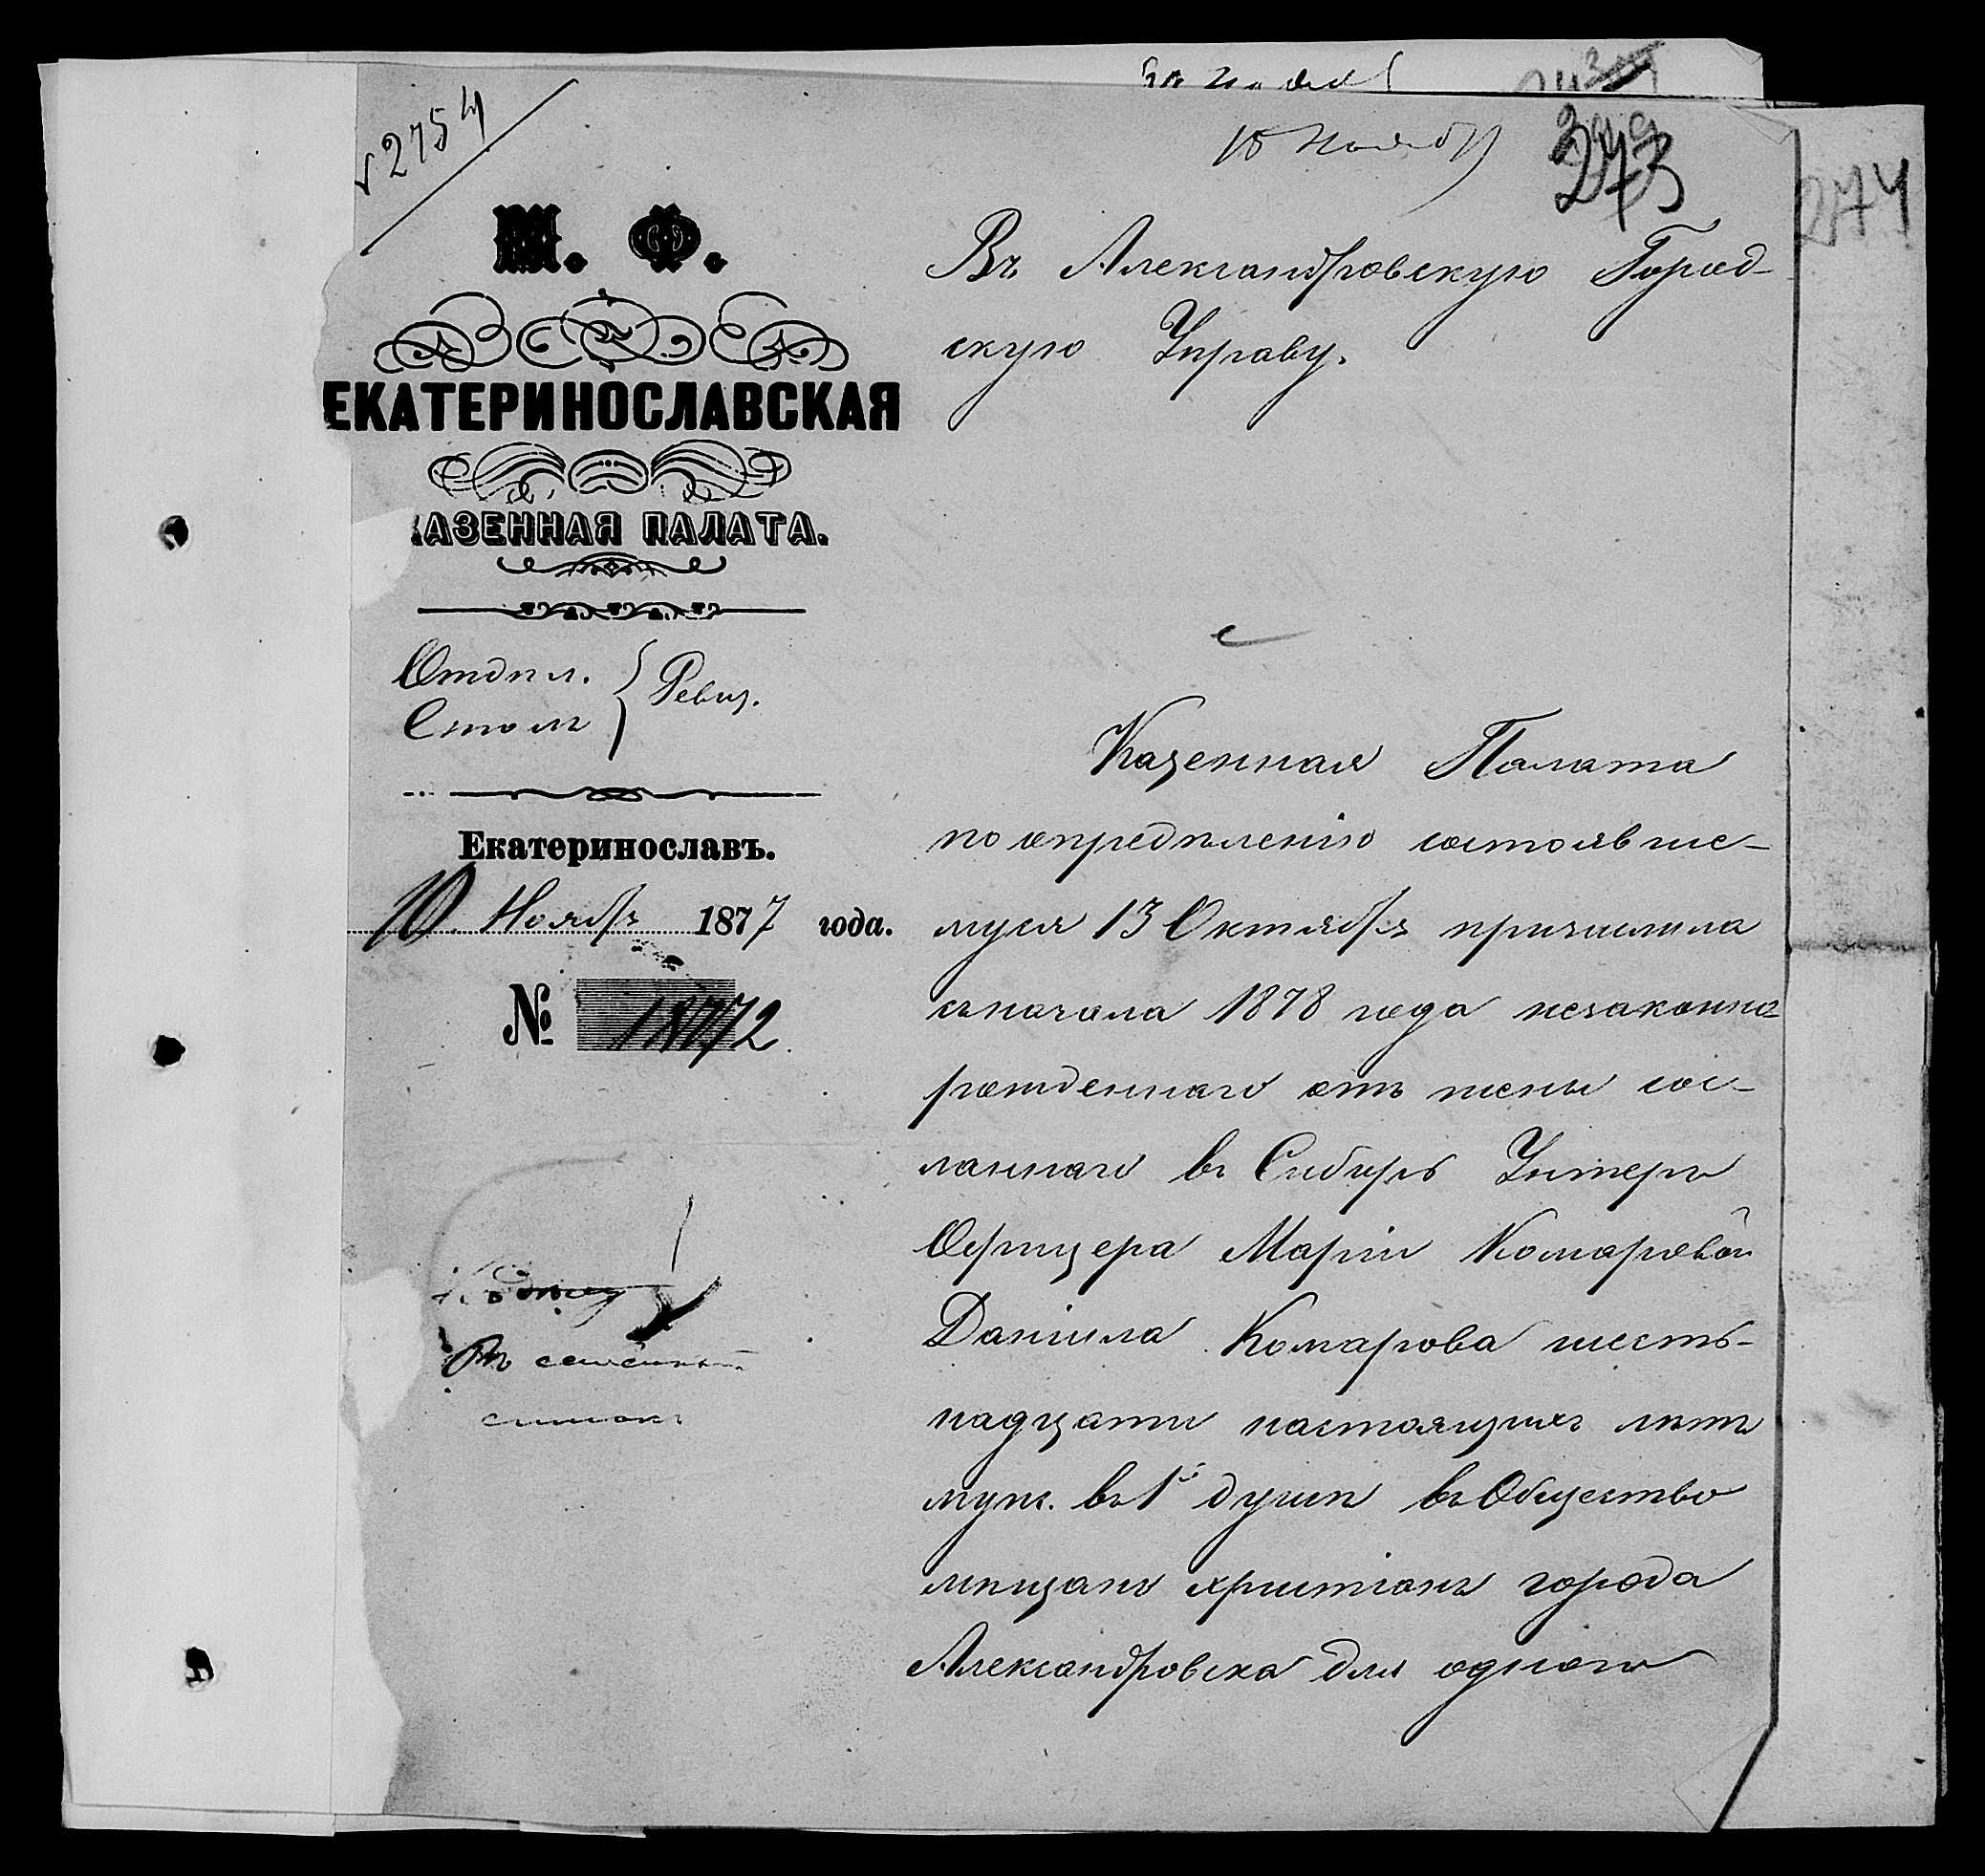 2754
15 Ноября
273
274
М. Ф.
ЕКАТЕРИНОСЛАВСКАЯ
КАЗЕННАЯ ПАЛАТА.
Отдѣл.
Столъ
Ревиз.
Екатеринославъ.
10 Ноября 1877 года.
№ 18772
Въ семейный
списокъ
Въ Александровскую Город-
скую Управу.
Казенная Палата
по опредѣленію состоявше-
муся 13 Октября причислила
съ начала 1878 года незаконно
рожденнаго отъ жены сос-
ланнаго въ Сибирь Унтеръ
Офицера Маріи Комаровой
Даніила Комарова шест-
надцати настоящихъ лѣтъ
муж. въ 1й душѣ въ Общество
мѣщанъ христіанъ города
Александровска для одного